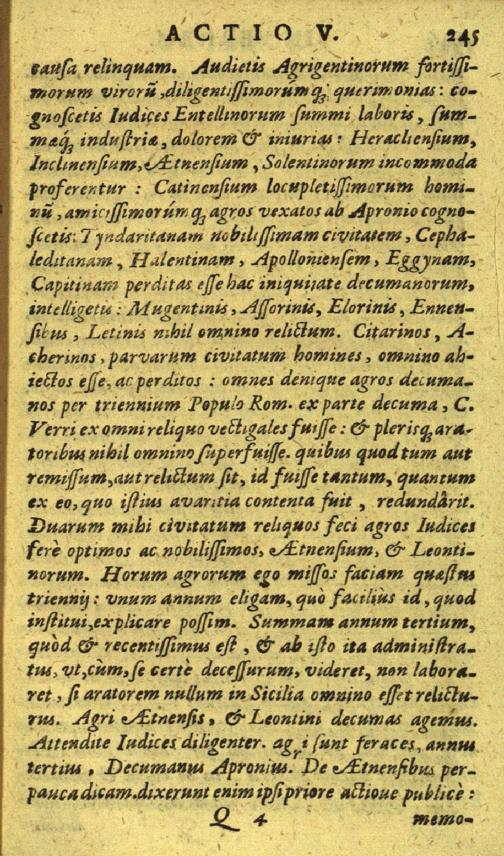 ACTIO V. 245
causa relinquam. Audietis Agrigentinorum fortissi-
morum virorũ, diligentissimorúmq; querimonias: co-
gnoscetis Iudices Entellinorum summi laboris, sum-
mæq́; industriæ, dolorem & iniurias: Heracliensium,
Inclinensium, Ætnensium, Solentinorum incommoda
proferentur: Catinensium locupletissimorum homi-
nũ, amicissimorúmq; agros vexatos ab Apronio cogno-
scetis: Tyndaritanam nobilissimam civitatem, Cepha-
leditanam, Halentinam, Apolloniensem, Eggynam,
Capitinam perditas esse hac iniquitate decumanorum,
intelligetis: Mugentinis, Assorinis, Elorinis, Ennen-
sibus, Letinis nihil omnino relictum. Citarinos, A-
cherinos, parvarum civitatum homines, omnino ab-
iectos esse, ac perditos: omnes denique agros decuma-
nos per triennium Populo Rom. ex parte decuma, C.
Verri ex omni reliquo vectigales fuisse: & plerisq; ara-
toribus nihil omnino superfuisse. quibus quod tum aut
remissum, aut relictum sit, id fuisse tantum, quantum
ex eo, quo istius avaritia contenta fuit, redundârit.
Duarum mihi civitatum reliquos feci agros Iudices
ferè optimos ac nobilissimos, Ætnensium, & Leonti-
norum. Horum agrorum ego missos faciam quæstus
triennij: vnum annum eligam, quò faciliùs id, quod
institui, explicare possim. Summam annum tertium,
quòd & recentissimus est, & ab isto ita administra-
tus, vt, cùm, se certè decessurum, videret, non labora-
ret, si aratorem nullum in Sicilia omnino esset relictu-
rus. Agri Ætnensis, & Leontini decumas agemus.
Attendite Iudices diligenter. agri sunt feraces, annus
tertius, Decumanus Apronius. De Ætnensibus per-
pauca dicam. dixerunt enim ipsi priore actioue publicè:
Q 4 memo-